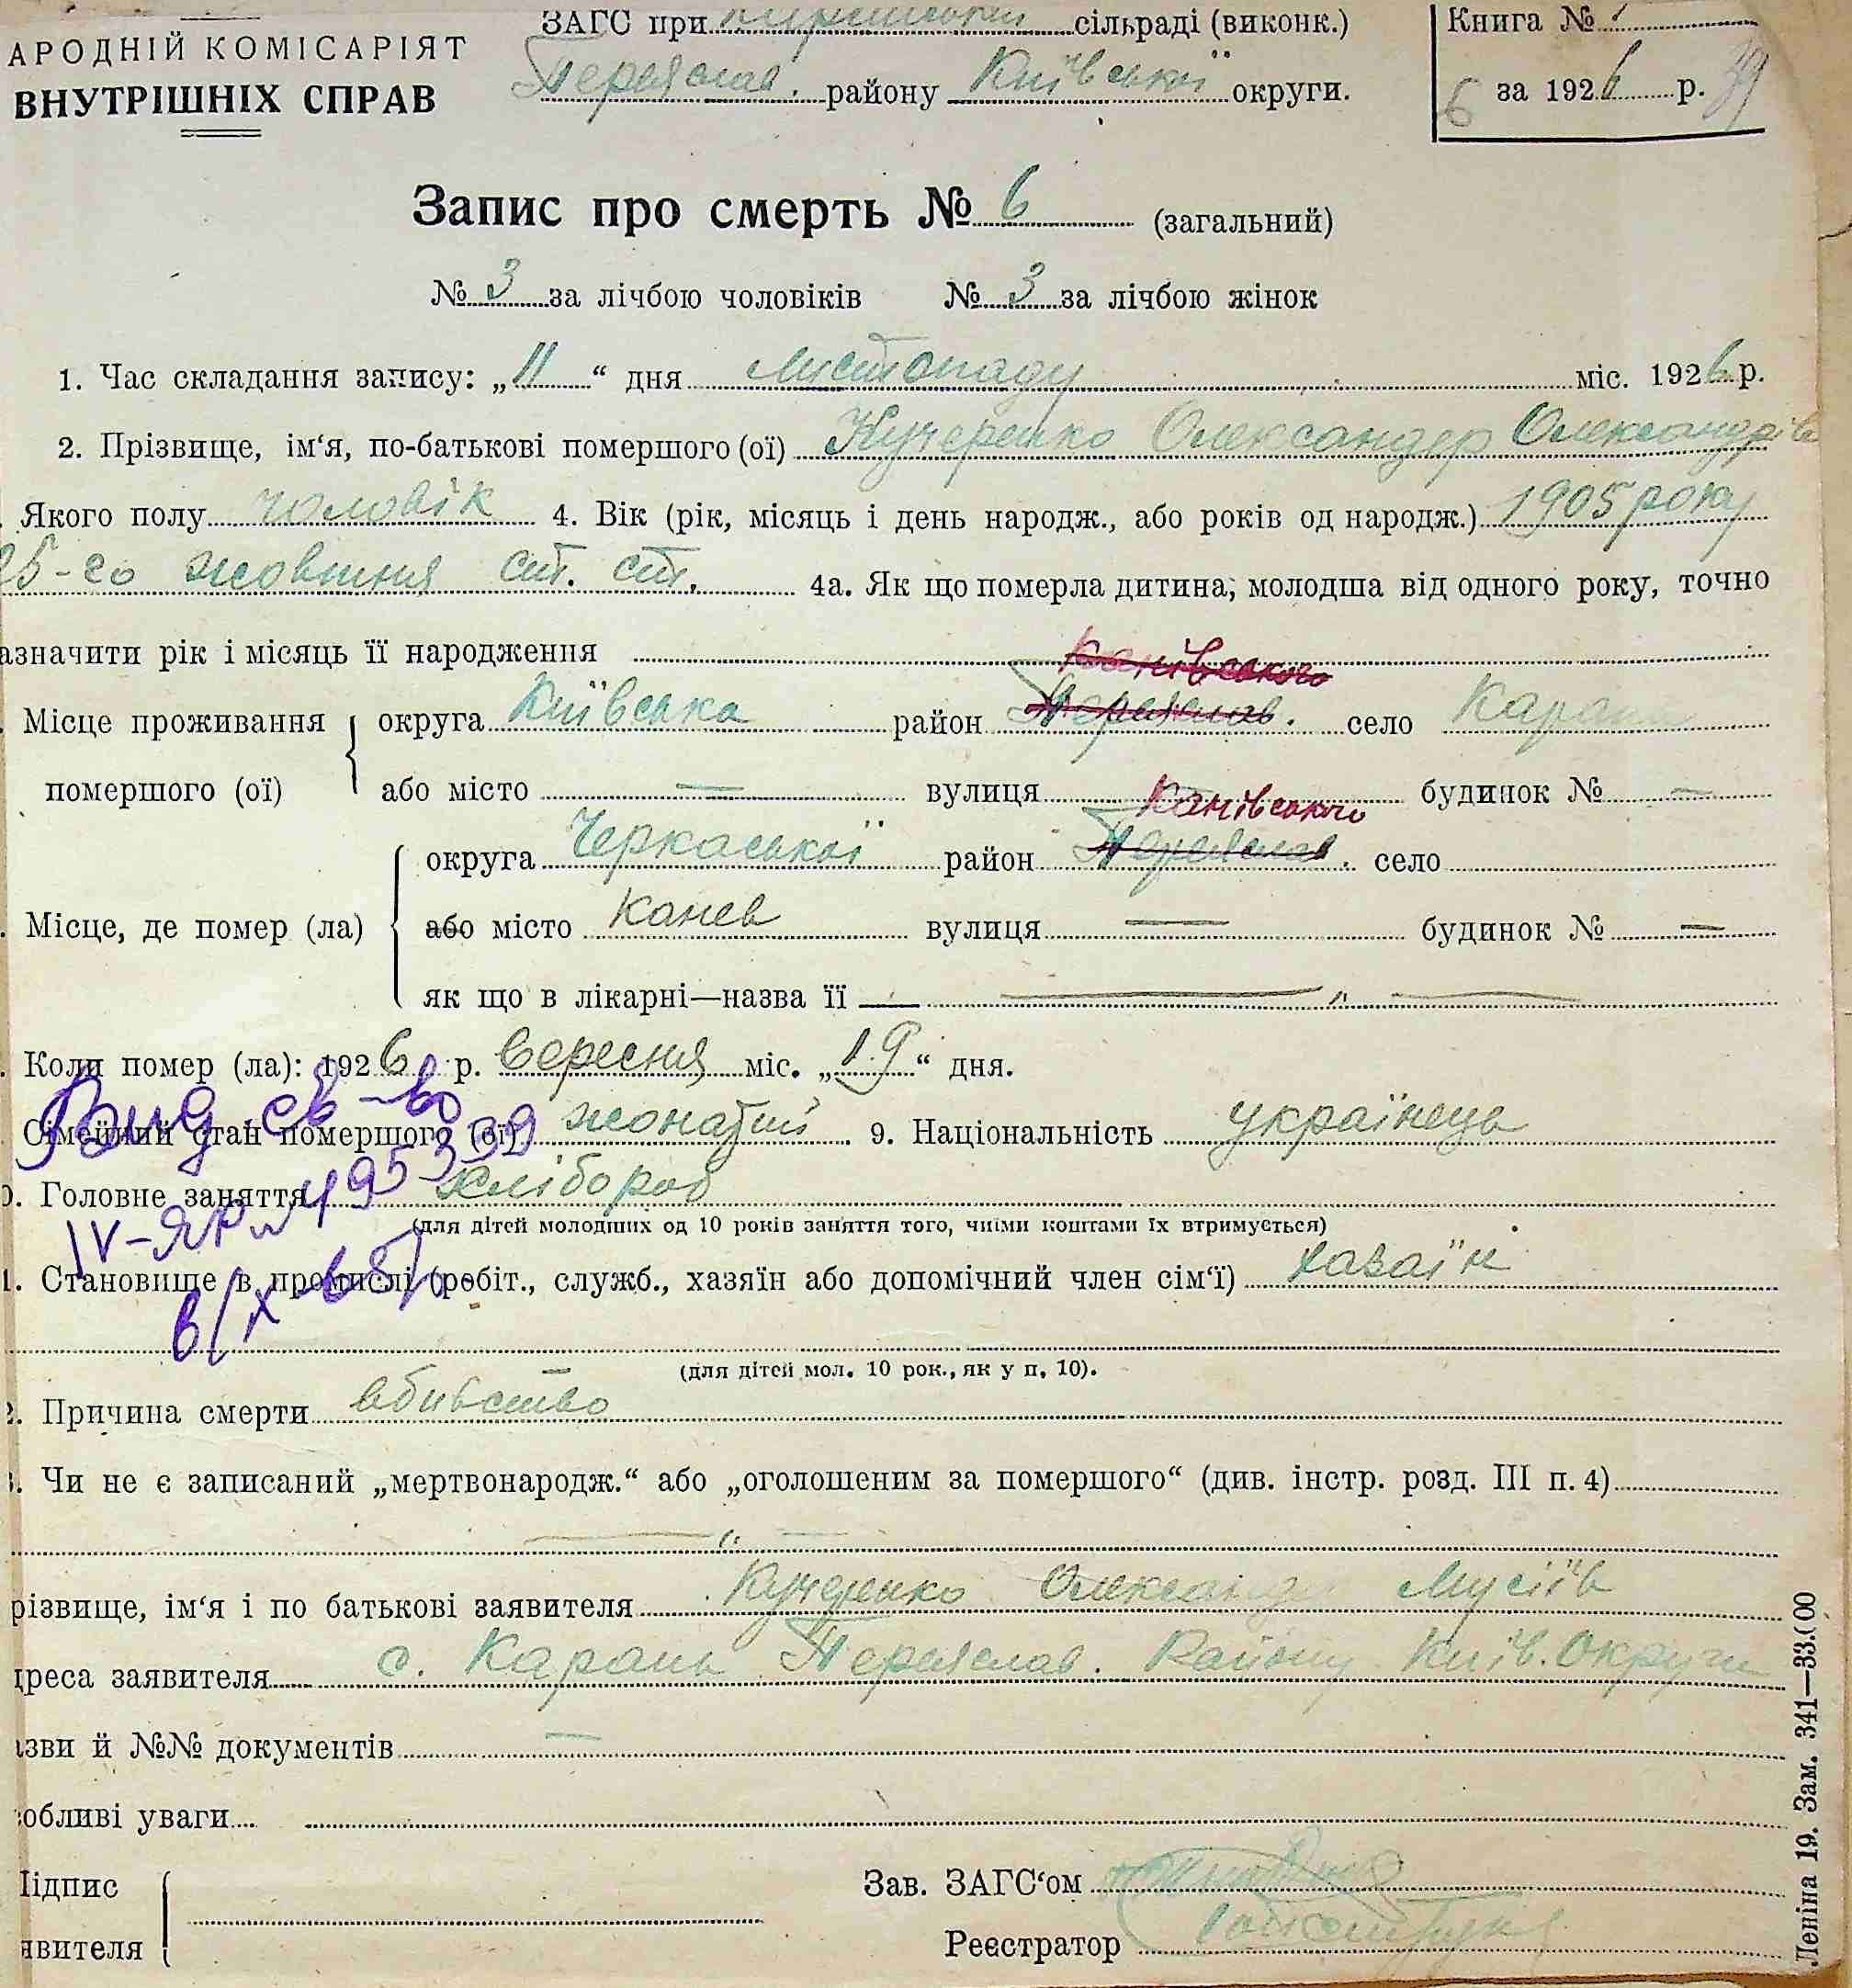 АРОДНІЙ КОМІСАРІЯТ
ВНУТРІШНІХ СПРАВ
ЗАГС при сільраді (виконк.)
Переяслав. району Київської округи.
Книга № 1
6 за 1926 р. 39
Запис про смерть № 6 (загальний)
№ 3 за лічбою чоловіків № 3 за лічбою жінок
1. Час складання запису: „11“ дня Листопаду міс. 1926 р.
2. Прізвище, ім‘я, по-батькові помершого (ої) Кучеренко Олександер Олександрів
. Якого полу чоловік 4. Вік (рік, місяць і день народж., або років од народж.) 1905 року
25-го жовтня ст. ст. 4а. Як що померла дитина, молодша від одного року, точно
азначити рік і місяць її народження
Канівського
. Місце проживання помершого (ої) округа Київська район Переяслав. село Карань
або місто — вулиця — будинок № —
Канівського
. Місце, де помер (ла) округа Черкаської район Переяслав. село
або місто Канев вулиця — будинок № —
як що в лікарні—назва її — „ —
. Коли помер (ла): 1926 р. вересня міс. „19“ дня.
Выд св-во
. Сімейний стан помершого (ої) жонатий 9. Національність українець
495339
0. Головне заняття хлібороб
IV-ЯР
(для дітей молодших од 10 років заняття того, чиїми коштами їх втримується)
1. Становище в промислі (робіт., служб., хазяїн або допомічний член сім‘ї) хазаїн
6/X-65
(для дітей мол. 10 рок., як у п. 10).
2. Причина смерти вбивство
3. Чи не є записаний „мертвонародж.“ або „оголошеним за помершого“ (див. інстр. розд. III п. 4)
— „ —
різвище, ім‘я і по батькові заявителя Кучеренко Олександ Мусіїв
дреса заявителя с. Карань Переяслав. Району Київ. Округи
азви й №№ документів —
собливі уваги
Підпис
явителя
Зав. ЗАГС‘ом
Реєстратор
Леніна 19. Зам. 341—33.000